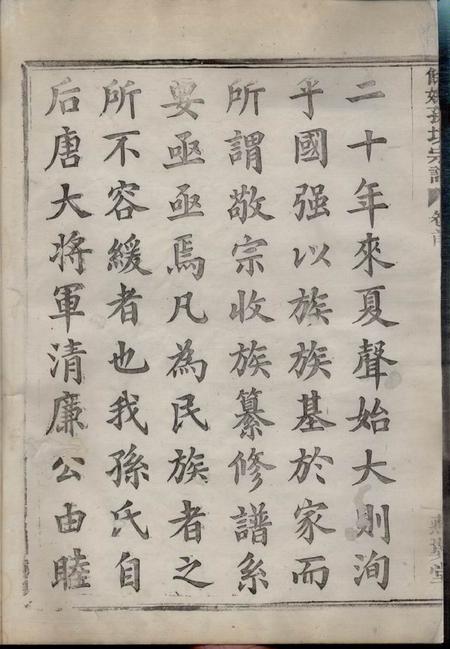 二十年來夏聲始大則洵
乎國强以族族基於家而
所謂敬宗收族纂修譜系
要亟亟焉凡為民族者之
所不容緩者也我孫氏自
后唐大將軍清廉公由睦